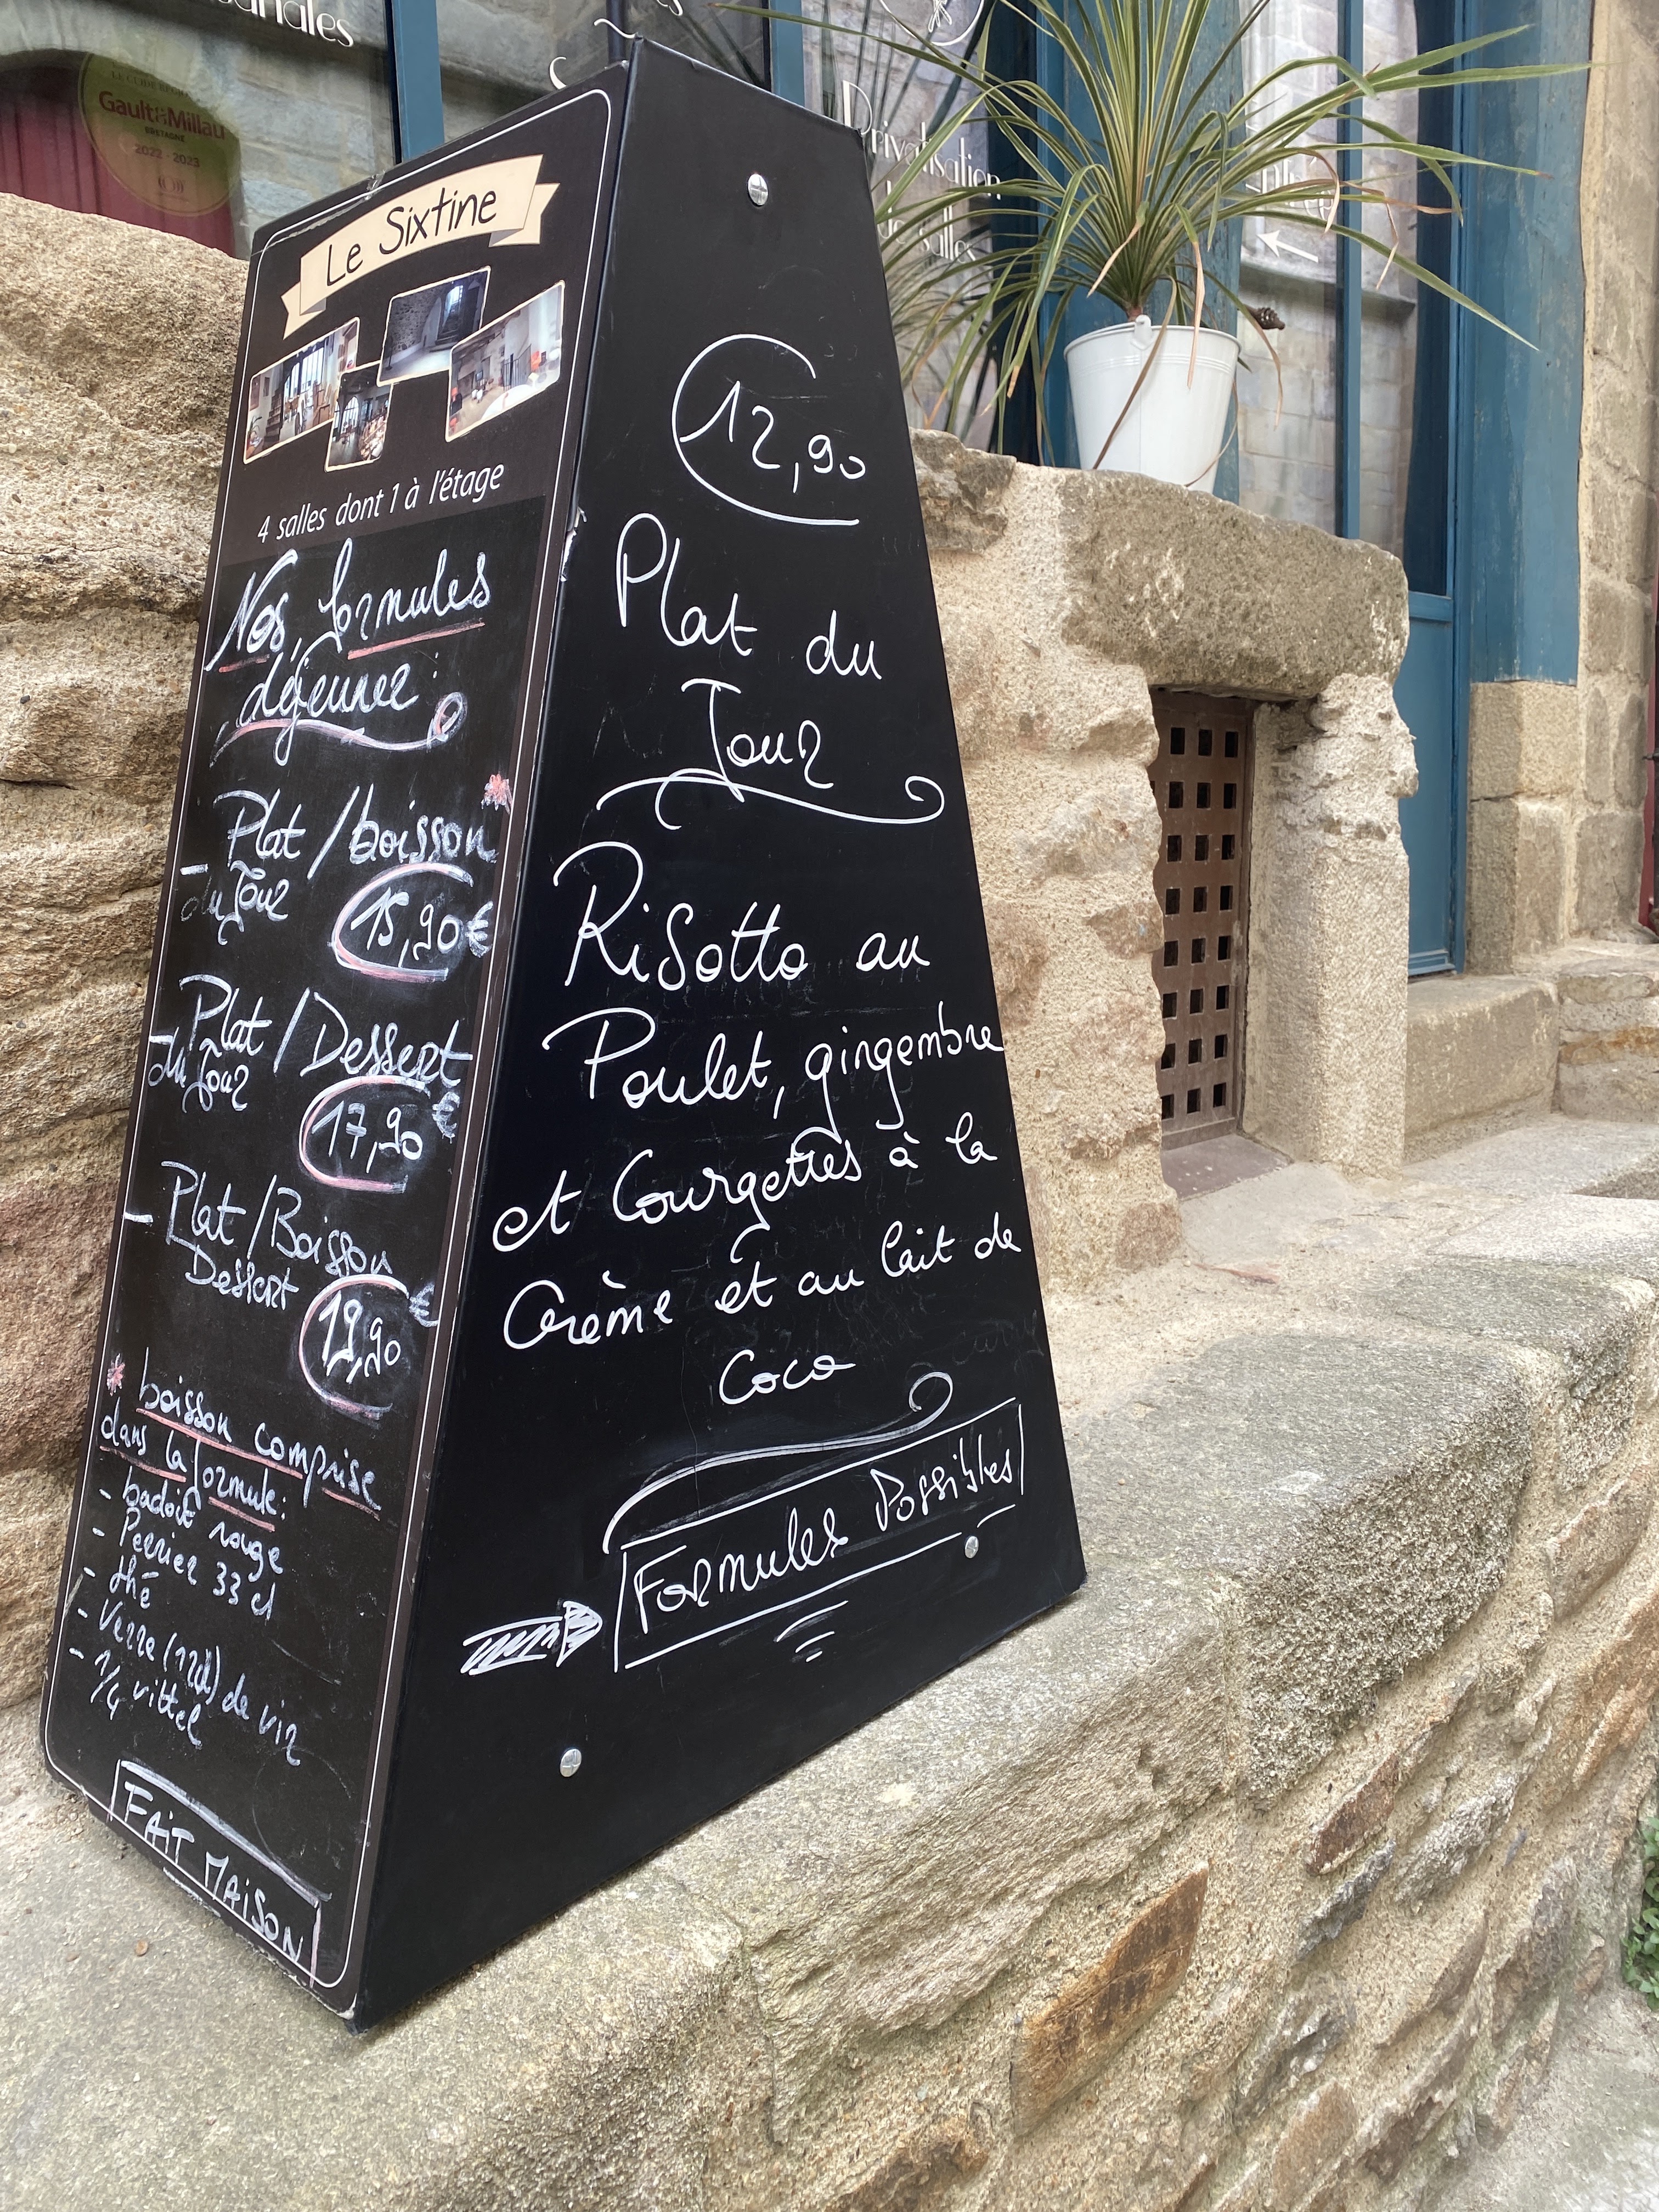 Gault&Millau
BRETAGNE
2022 - 2023
Privatisation
de salles
Le Sixtine
4 salles dont 1 à l'étage
Nos formules
déjeuner :
- Plat / boisson *
du Jour
15,90 €
- Plat / Dessert
du Jour
17,90 €
- Plat / Boisson
Dessert
19,90 €
* boisson comprise
dans la formule :
- badoit rouge
- Perrier 33 cl
- thé
- Verre (12cl) de vin
- 1/4 vittel
FAIT MAISON
12,90
Plat du
Jour
Risotto au
Poulet, gingembre
et Courgettes à la
Crème et au lait de
Coco
Formules Possibles